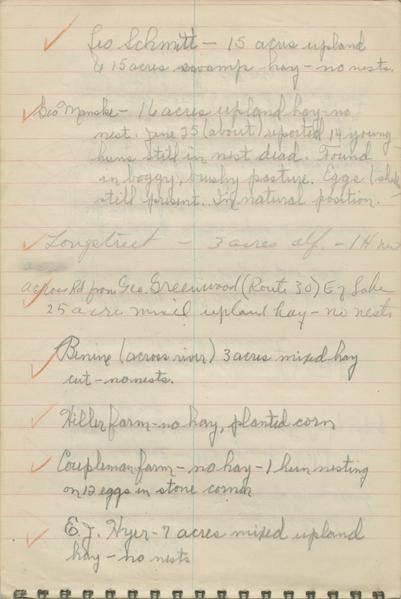 Geo Schmitt - 15 acres upland
& 15 acres swamp hay - no nests.
Geo Manske - 16 acres upland hay - no
nest. June 25 (about) reported 14 young
hens still in nest dead. Found
in boggy, brushy pasture. Eggs (shell
still present. In natural position.
Longstreet - 3 acres alf. - 1 H nest
across Rd from Geo. Greenwood (Route 30) E of Lake
25 acre mixed upland hay - no nests
(across river) 3 acres mixed hay
cut - no nests.
Hiller farm - no hay, planted corn
Coupleman farm - no hay - 1 hen nesting
on 12 eggs in stone corner
E. J. Hyer - 7 acres mixed upland
hay - no nests